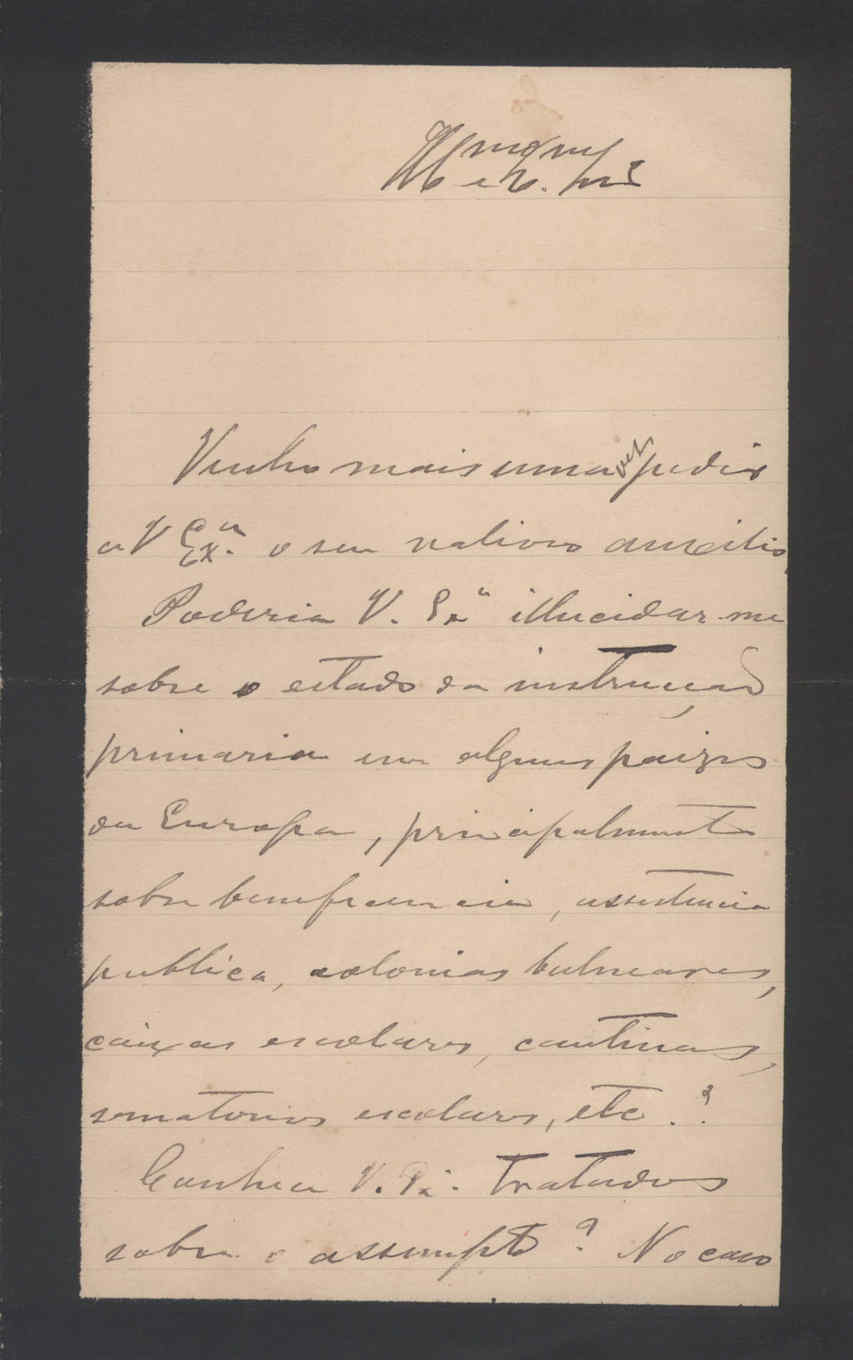 Ill.mo Ex.mo Snr
Venho mais uma vez pedir
a V Exa. o seu valioso auxilio
Poderia V. Exa illucidar-me
sobre o estado da instrucção
primaria em alguns paizes
da Europa, principalmente
sobre beneficencia, assistencia
publica, colonias balneares,
caixas escolares, cantinas,
sanatorios escolares, etc.?
Conhece V. Exa. tratados
sobre o assumpto? No caso